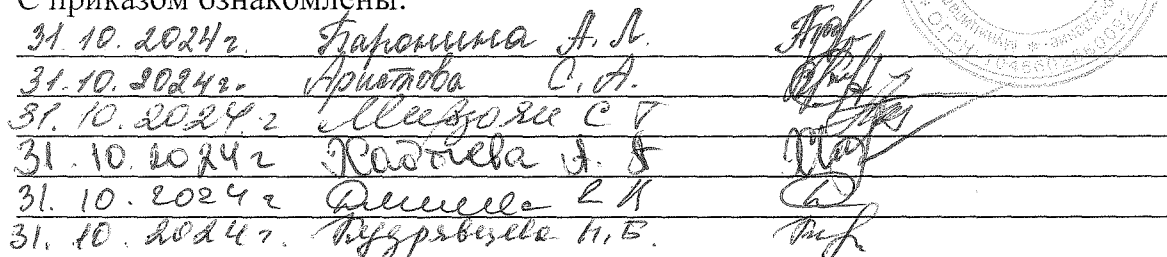 С приказом ознакомлены:
31.10.2024г. Баронина А.Л.
31.10.2024г. Аристова С.А.
31.10.2024.г Мирзоян С Г
31.10.2024г Хадыева А. А
31.10.2024г Е К
31.10.2024г. Кудрявцева Н.Б.
ОГРН